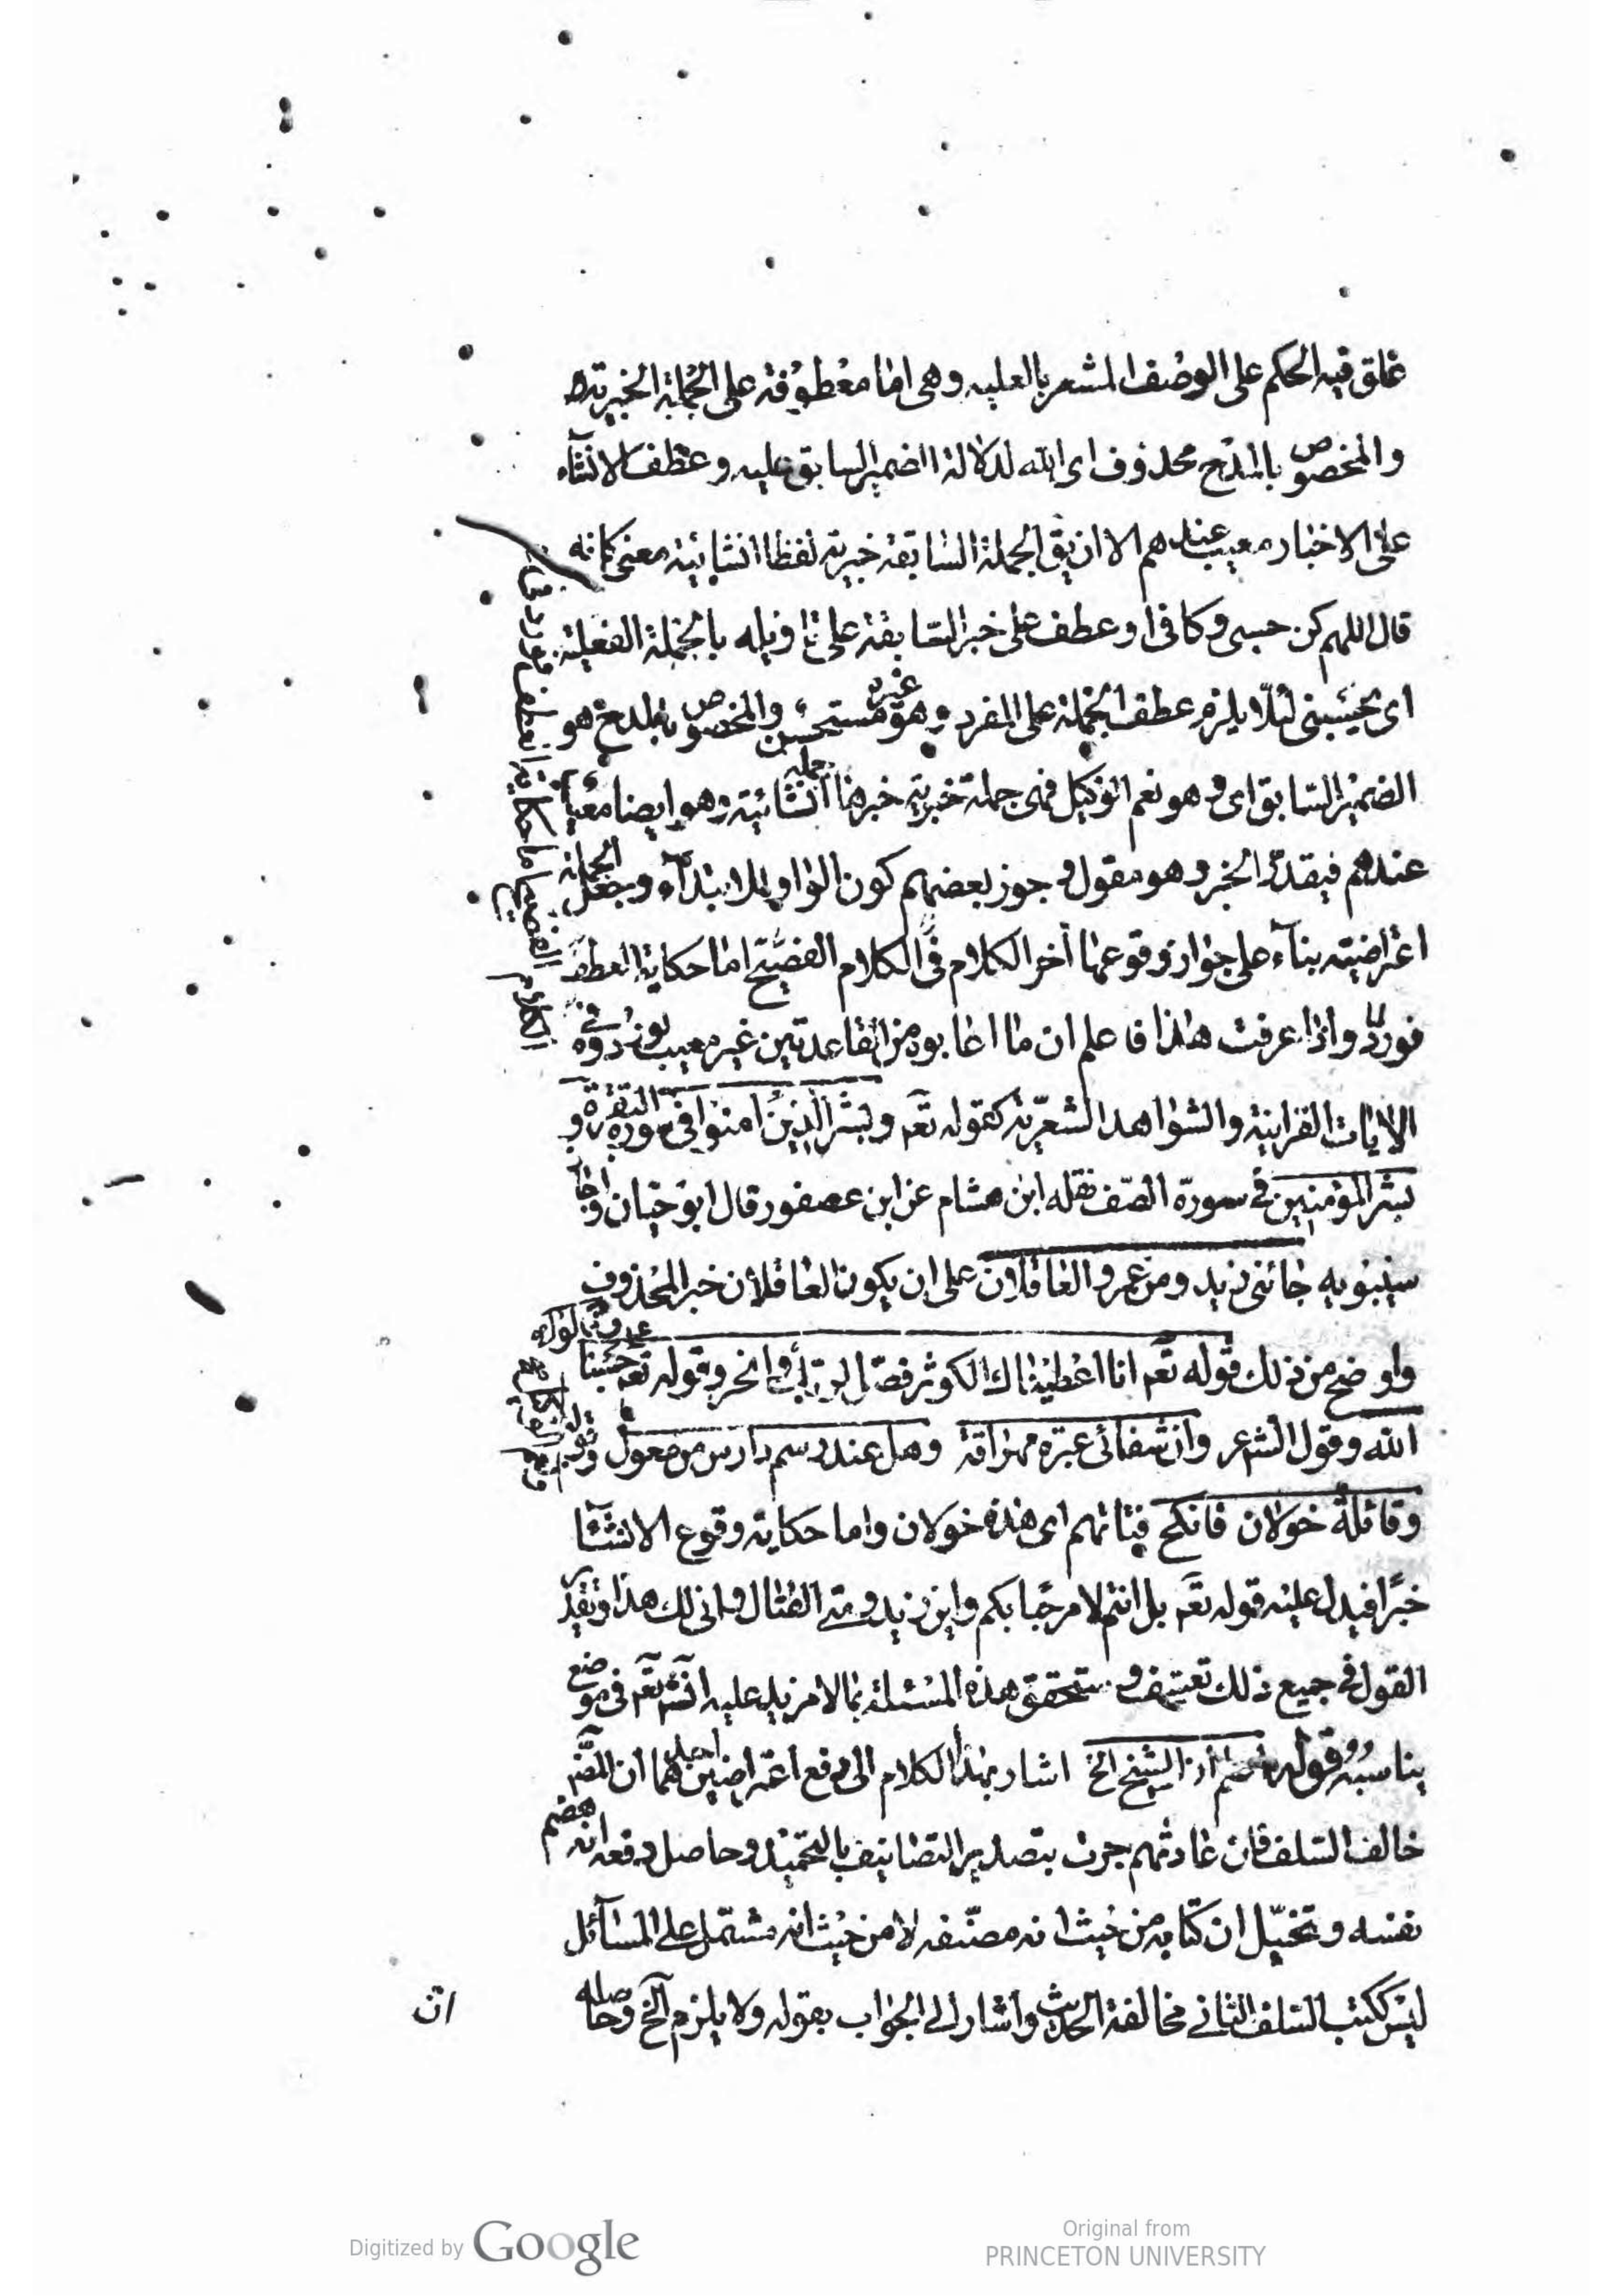 علق فيه الحكم على الوصف المشعر بالعلیه وهى اما معطوفة على الجملة الخبرية
والمخصوص بالمدح محذوف اى الله لدلالة الضمير السابق عليه وعطف الانشاء
على الاخبار معيب عندهم الا ان يق الجملة السابقة خبرية لفظا انشائية معنى كانه
قال اللهم كن حسبى وكافى او عطف على خبر السابقة على تاويله بالجملة الفعلية
اى يحسبنى لئلا يلزم عطف الجملة على المفرد وهو غير مستحسن والمخصوص بالمدح هو
الضمير السابق اى وهو نعم الوكيل فهى جملة خبرية خبرها جملة انشائية وهو ايضا معيب
عندهم فيقدر الخبر وهو مقول و جوز بعضهم كون الواو للابتداء وجعل الجملة
اعتراضية بناء على جواز وقوعها اخر الكلام فى الكلام الفصيح اما حكاية العطف
فورد واذا عرفت هذا فاعلم ان ما اعابوه من القاعدتين غير معيب لوروده فى
الايات القرانية والشواهد الشعرية كقوله تعم وبشر الذين امنوا فى سورة البقرة و
بشر المؤمنين فى سورة الصف نقله ابن هشام عن ابن عصفور قال ابو حيان واجاز
سيبويه جائنى زيد ومن عمرو العاقلان على ان يكون العاقلان خبر المحذوف
واوضح من ذلك قوله تعم انا اعطيناك الكوثر فصل لربك وانحر وقوله تعم حسبنا
الله وقول الشعر وان شفائى عبرة مهراقة وهل عند رسم دارس من معول وقوله
وقائلة خولان فانكح فتاتهم اى هذه خولان واما حكاية وقوع الانشاء
خبرا فيدل عليه قوله تعم بل انتم لا مرحبا بكم واين زيد ومتى القتال وانى لك هذا وتقدير
القول فى جميع ذلك تعسف و ستحقق هذه المسئلة بما لا مزيد عليه انشتعم فى موضع
يناسبه قوله اذ الشيخ الخ اشار بهذا الكلام الى دفع اعتراضين احدهما ان المص
خالف السلف فان عادتهم جرت بتصدير التصانيف بالتحميد وحاصل دفعه انه هضم
نفسه وتخيل ان كتابه من حيث انه مصنفه لا من حيث انه مشتمل على المسائل
ليس ككتب السلف الثانى مخالفة الحديث واشار الى الجواب بقوله ولا يلزم الخ وحاصله
ان
Digitized by Google
Original from
PRINCETON UNIVERSITY